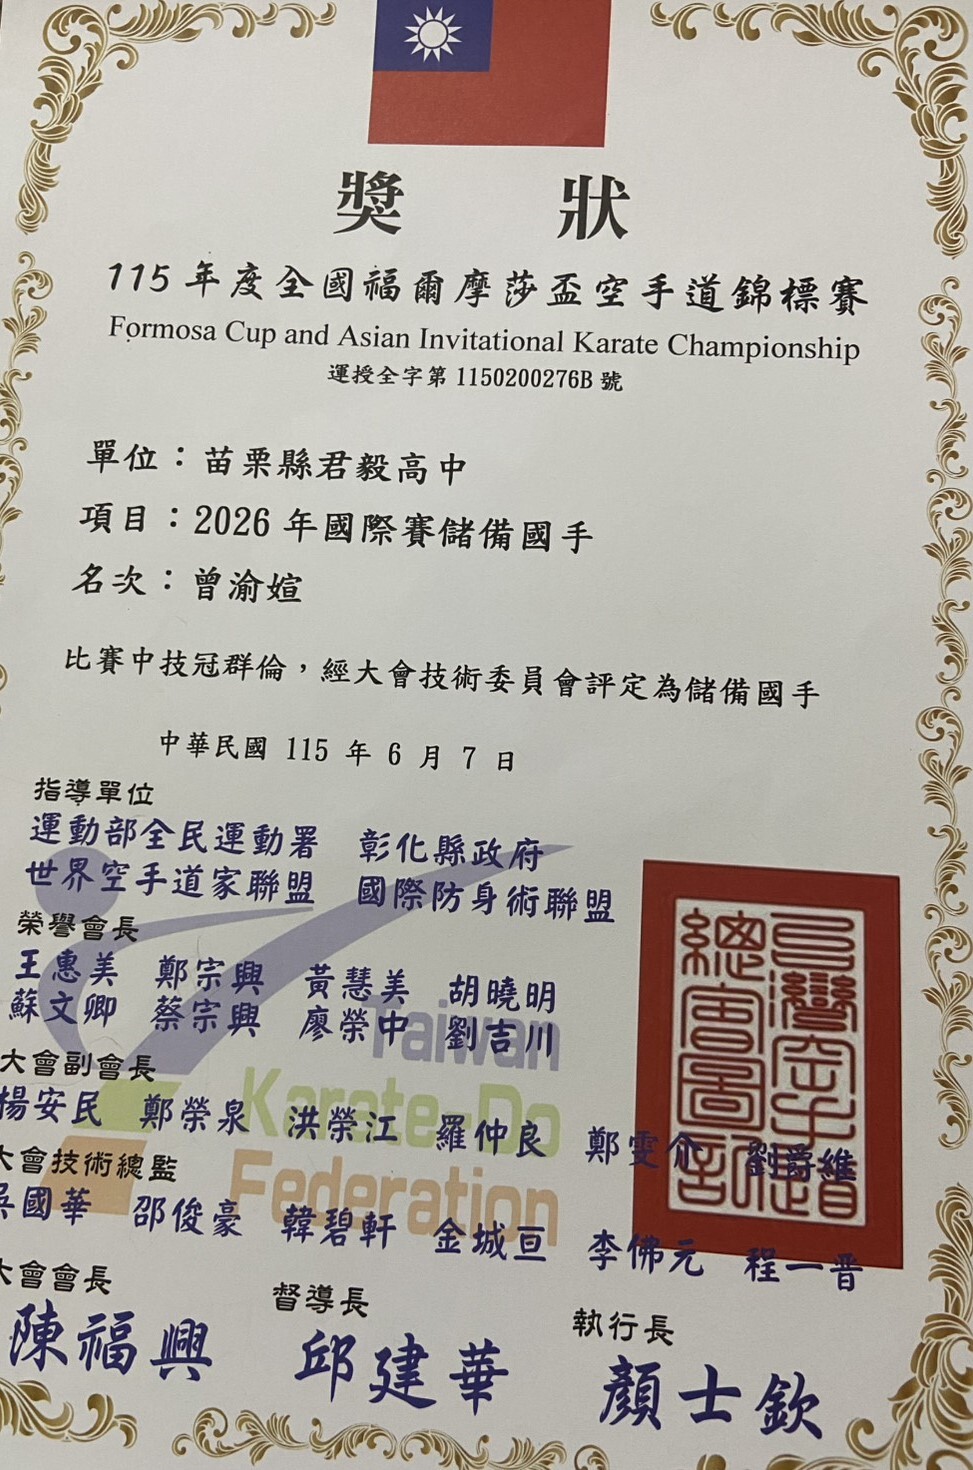 獎 狀
115年度全國福爾摩莎盃空手道錦標賽
Formosa Cup and Asian Invitational Karate Championship
運授全字第1150200276B號
單位：苗栗縣君毅高中
項目：2026年國際賽儲備國手
名次：曾渝媗
比賽中技冠群倫，經大會技術委員會評定為儲備國手
中華民國 115 年 6 月 7 日
指導單位
運動部全民運動署 彰化縣政府
世界空手道家聯盟 國際防身術聯盟
榮譽會長
王惠美 鄭宗興 黃慧美 胡曉明
蘇文卿 蔡宗興 廖榮中 劉吉川
大會副會長
楊安民 鄭榮泉 洪榮江 羅仲良 鄭雯介 劉爵維
大會技術總監
吳國華 邵俊豪 韓碧軒 金城亘 李佛元 程一晋
大會會長 督導長 執行長
陳福興 邱建華 顏士欽
Taiwan
Karate-Do
Federation